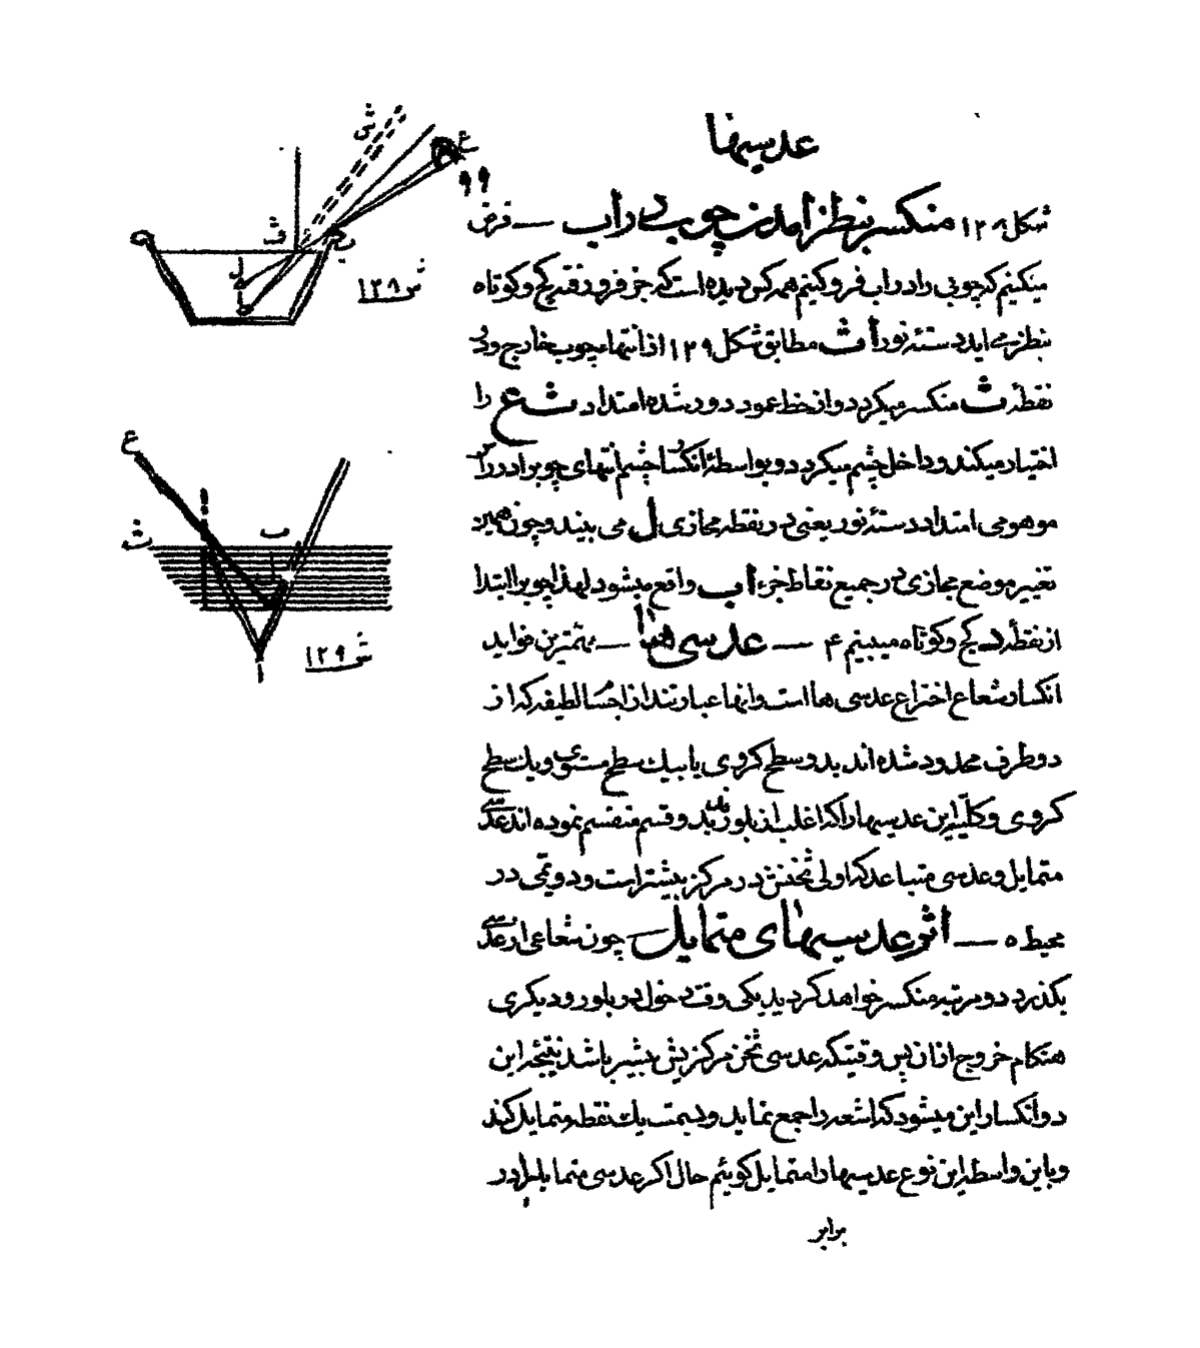 عدسیها
۹۹
شکل ۱۲۹ منکسر بنظر آمدن چوبی در آب — فرض
میکنیم که چوبی را در آب فرو کنیم همه کس دیده است که جزء فرو رفته کج و کوتاه
بنظر می آید دستهٔ نور أ ث مطابق شکل ۱۲۹ از انتهاء چوب خارج و در
نقطهٔ ث منکسر میگردد و از خط عمود دور شده امتداد ث ع را
اختیار میکند و داخل چشم میگردد و بواسطهٔ انکسار چشم انتهای چوب را در
موهومی امتداد دستهٔ نور یعنی در نقطه مجازی ل می بیند و چون همین
تغییر موضع مجازی در جمیع نقاط جزء أ ب واقع میشود لهذا چوب را ابتدا
از نقطهٔ کج و کوتاه میبینیم ۴ — عدسی ها — مهمترین فواید
انکسار شعاع اختراع عدسی ها است و آنها عبارتند از اجسام لطیفه که از
دو طرف محدود شده اند بدو سطح کروی یا بیک سطح مستوی و یک سطح
کروی و کلیةً این عدسیها را که اغلب از بلورند بدو قسم منقسم نموده اند عدسی
متمایل و عدسی متباعد که اولی ثخنش در مرکز بیشتر است و دویمی در
محیط ۵ — اثر عدسیهای متمایل — چون شعاعی از عدسی
بگذرد دو مرتبه منکسر خواهد گردید یکی وقت دخول در بلور و دیگری
هنگام خروج از آن پس وقتیکه عدسی ثخن مرکزیش بیشتر باشد نتیجه این
دو انکسار این میشود که اشعه را جمع نماید و بسمت یک نقطه متمایل کند
و باین واسطه این نوع عدسیها را متمایل گوئیم حال اگر عدسی متمایل را در
برابر
ش
ع
ث
ب
ل
أ
ش ۱۲۸
ع
ث
ب
ل
ا
ش ۱۲۹